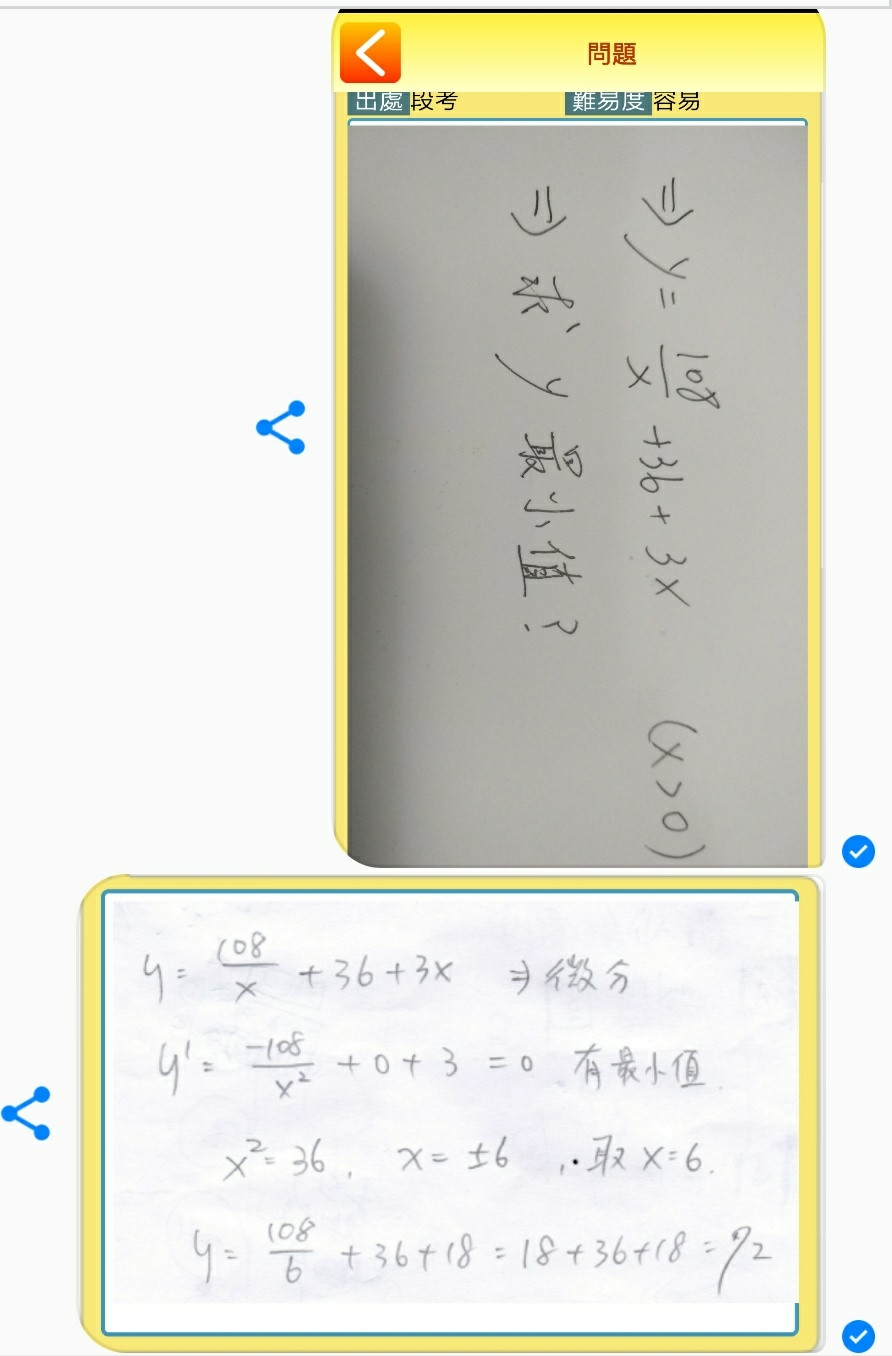 問題
出處 段考 難易度 容易
⇒ y = 108/x + 36 + 3x (x > 0)
⇒ 求 y 最小值?
y = 108/x + 36 + 3x ⇒ 微分
y' = -108/x² + 0 + 3 = 0 有最小值
x² = 36, x = ±6 ,∴ 取 x = 6.
y = 108/6 + 36 + 18 = 18 + 36 + 18 = 72